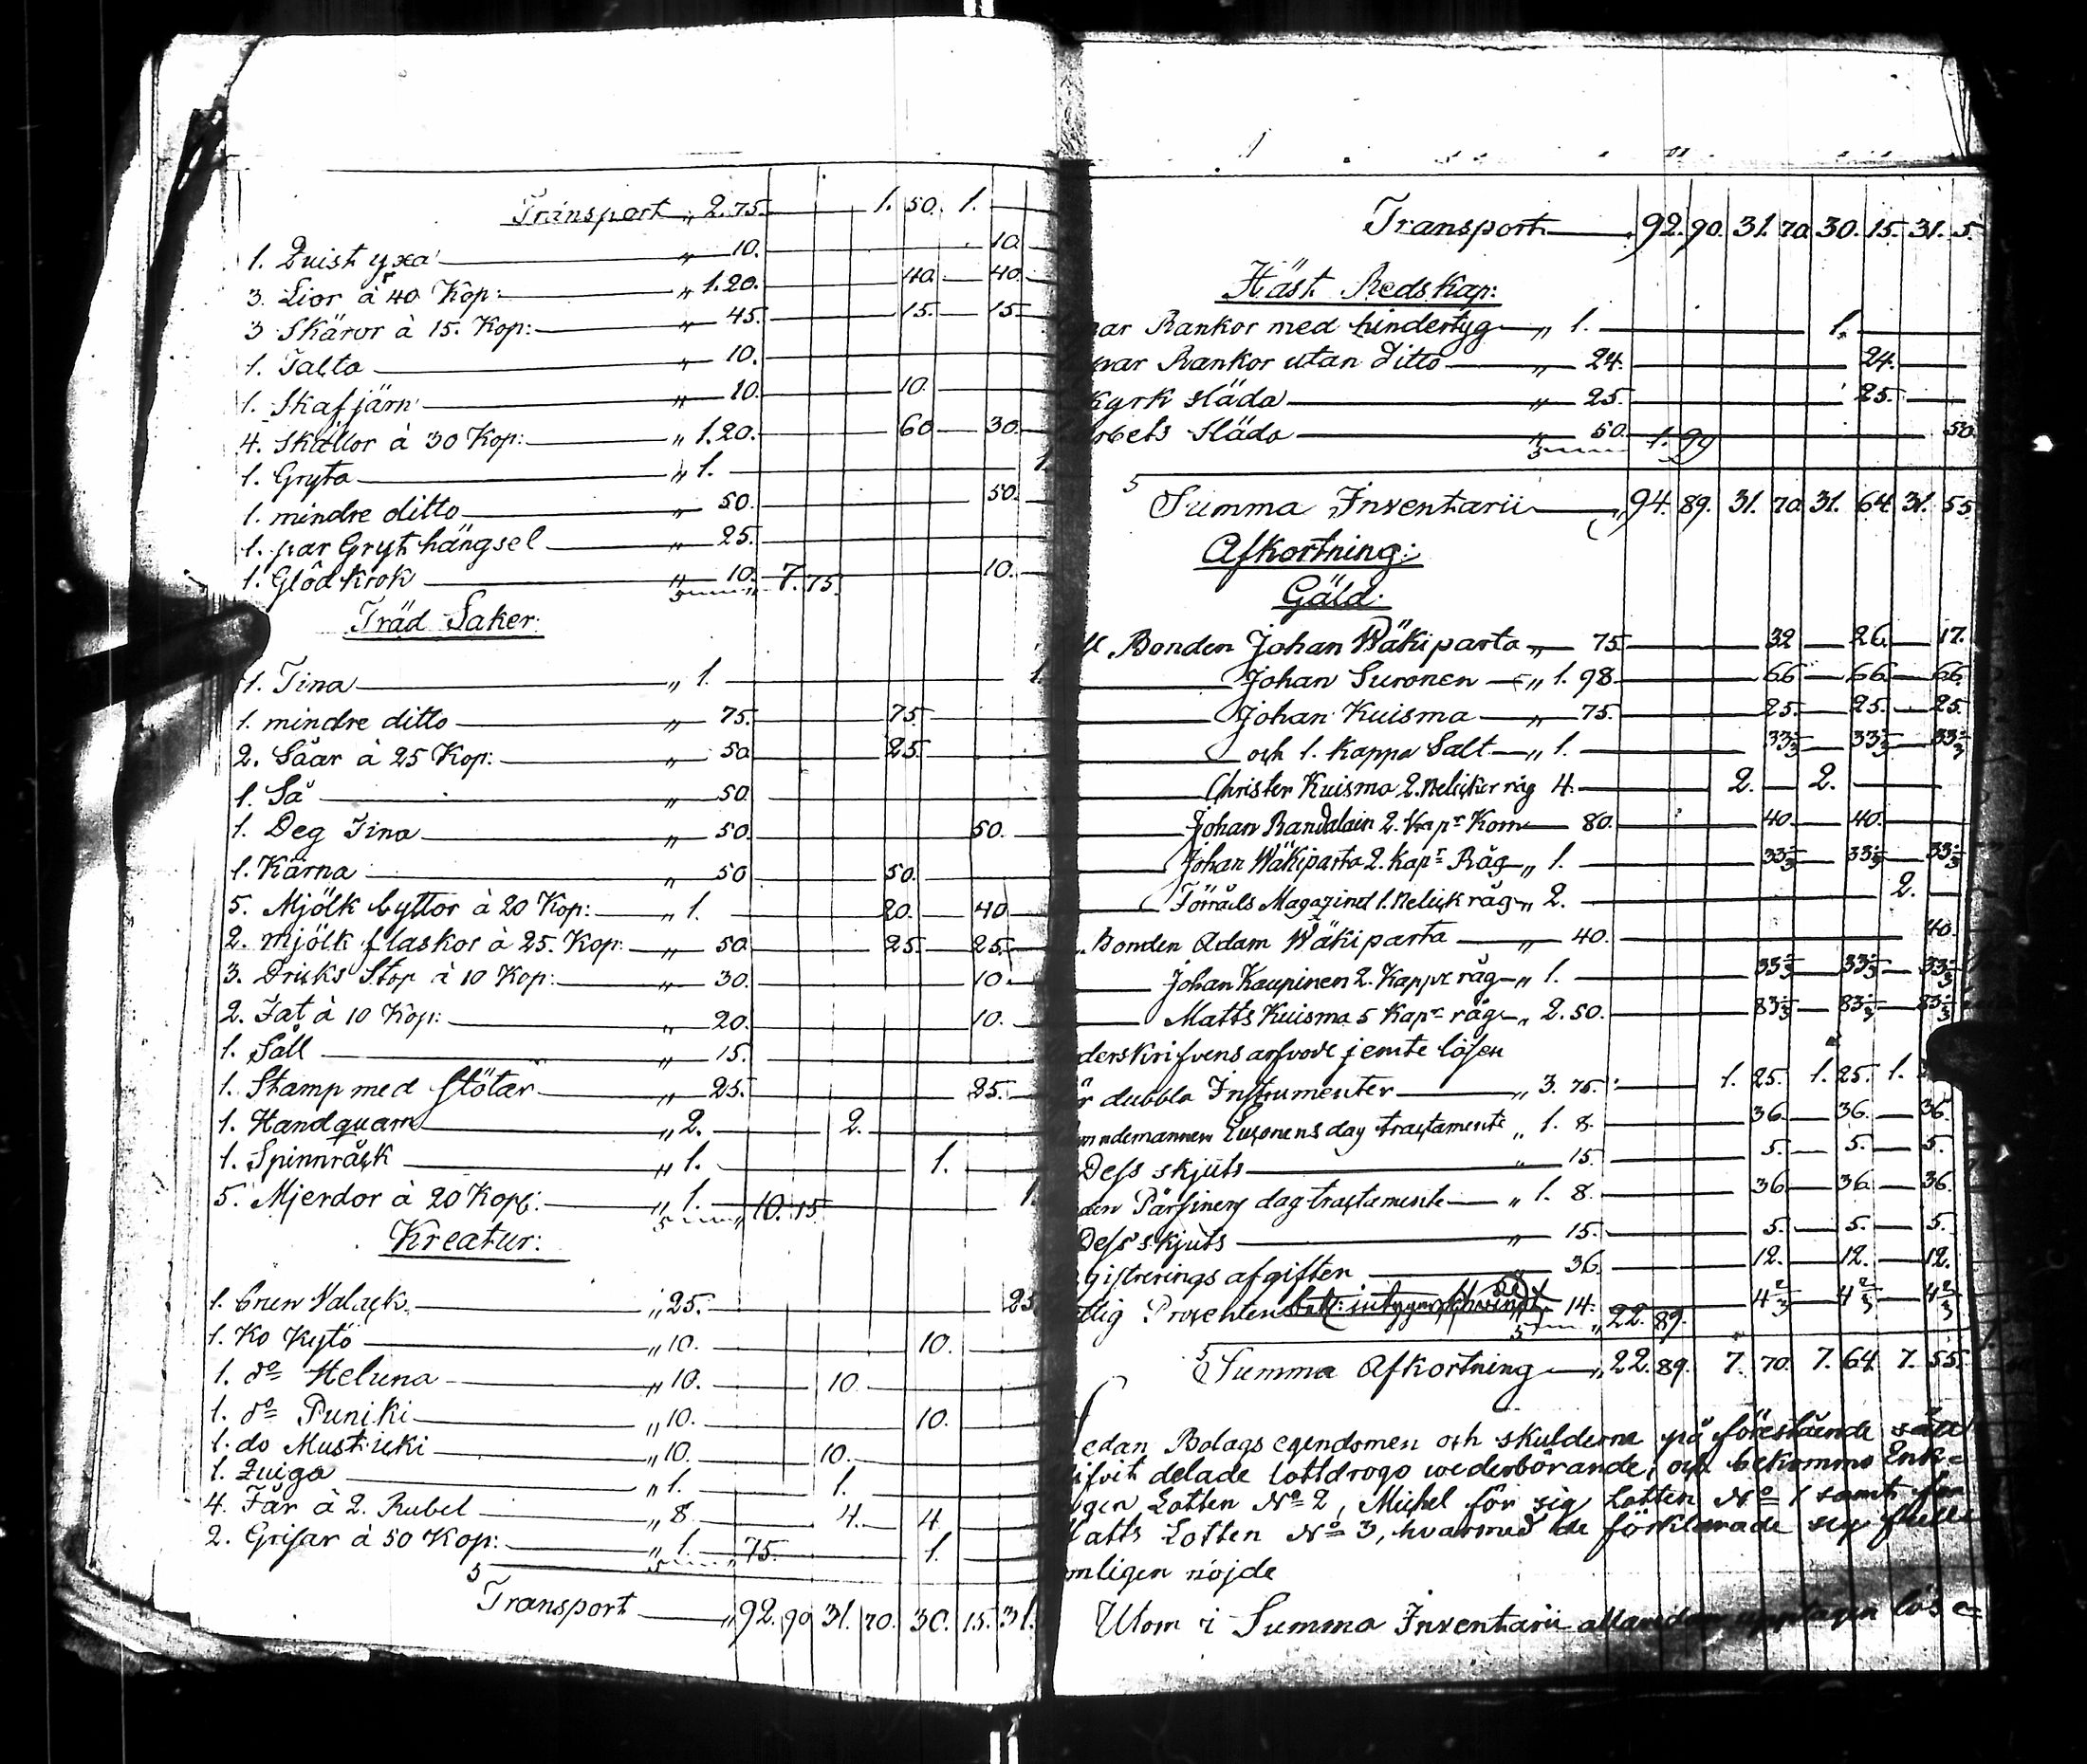 Transport „ 2. 75. 1. 50. 1.
1. Quist yxa „ 10. 10.
3. Lior à 40 Kop: „ 1.20. 40. 40.
3 Skäror à 15. Kop: „ 45. 15. 15.
1. Talta „ 10.
1. Skafjärn „ 10. 10.
4. Skållor à 30 Kop: „ 1.20. 60 30.
1. Gryta „ 1. 1
1. mindre ditto „ 50. 50.
1. par Gryt hängsel „ 25.
1. Glöd krok „ 10. 7. 75. 10.
Träd Saker:
1. Tina „ 1. 1.
1. mindre ditto „ 75. 75.
2. Såar à 25 Kop: „ 50. 25.
1. Så „ 50.
1. Deg Tina „ 50. 50.
1. Kärna „ 50 50.
5. Mjölk byttor à 20 Kop: „ 1. 20. 40
2. mjölk flaskor à 25. Kop: „ 50. 25. 25.
3. Dricks Stop à 10 Kop: „ 30. 10.
2. Fat à 10 Kop: „ 20. 10.
1. Såll „ 15.
1. Stamp med Stötar „ 25. 25.
1. Handquarn „ 2. 2.
1. Spinnråck „ 1. 1.
5. Mjerdor à 20 Kop: „ 1. 10. 15. 1.
Kreatur:
1. brun Valack „ 25. 25
1. Ko Kytö „ 10. 10.
1. do Heluna „ 10. 10.
1. do Puniki „ 10. 10.
1. do Musticki „ 10. 10.
1. Quiga „ 1. 1.
4. Får à 2. Rubel „ 8. 4. 4.
2. Grisar à 50 Kop: „ 1. 75. 1.
Transport „ 92. 90 31. 70. 30. 15. 31.
Transport 92. 90. 31. 70. 30. 15. 31. 5.
Häst Redskap:
par Rankor med hindertyg „ 1. 1.
par Rankor utan Ditto „ 24. 24.
Kyrk släda „ 25. 25.
släda „ 50. 1. 99 50.
Summa Inventarii „ 94. 89. 31. 70. 31. 64. 31. 55
Afkortning:
Gäld:
Bonden Johan Wäkiparta „ 75. 32 26. 17.
Johan Suronen „ 1. 98. 66 66. 66.
Johan Kuisma „ 75. 25. 25. 25.
och 1. Kappa Salt „ 1. 33⅓ 33⅓ 33⅓
Christer Kuisma 2. Nelicker råg 4. 2. 2.
Johan 2. Kapr Korn 80. 40. 40.
Johan Wäkiparta 2. Kapr Råg „ 1. 33⅓ 33⅓ 33⅓
Förråds Magazinet 1. Nelick råg „ 2. 2.
Bonden Adam Wäkiparta „ 40. 40.
Johan Kaupinen 2. Kappr råg „ 1. 33⅓ 33⅓ 33⅓
Matts Kuisma 5 Kapr råg „ 2. 50. 83⅓ 83⅓ 83⅓
derskrifvens arfvode jemte lösen
r dubbla Instrumenter „ 3. 75. 1. 25. 1. 25. 1.
ndemannen dag tractamente „ 1. 8. 36. 36. 36.
Dess skjuts „ 15. 5. 5. 5.
dag tractamente „ 1. 8. 36 36. 36.
Dess skjuts „ 15. 5. 5. 5.
gistrerings afgiften 36. 12. 12. 12.
Procenten 14. 22. 89. 4⅔ 4⅔ 4⅔
Summa Afkortning „ 22. 89. 7. 70. 7. 64. 7. 55.
edan Bolags egendomen och skulderne på förestående sätt
ifvit delade lottdrogo wederbörande, och bekommo Enk=
gen Lotten No 2, Michel för sig Lotten No 1 samt för
atts Lotten No 3, hvarmed de förklarade sig full
mligen nöjde
Utom i Summa Inventarii allaredan upptagen lös e=